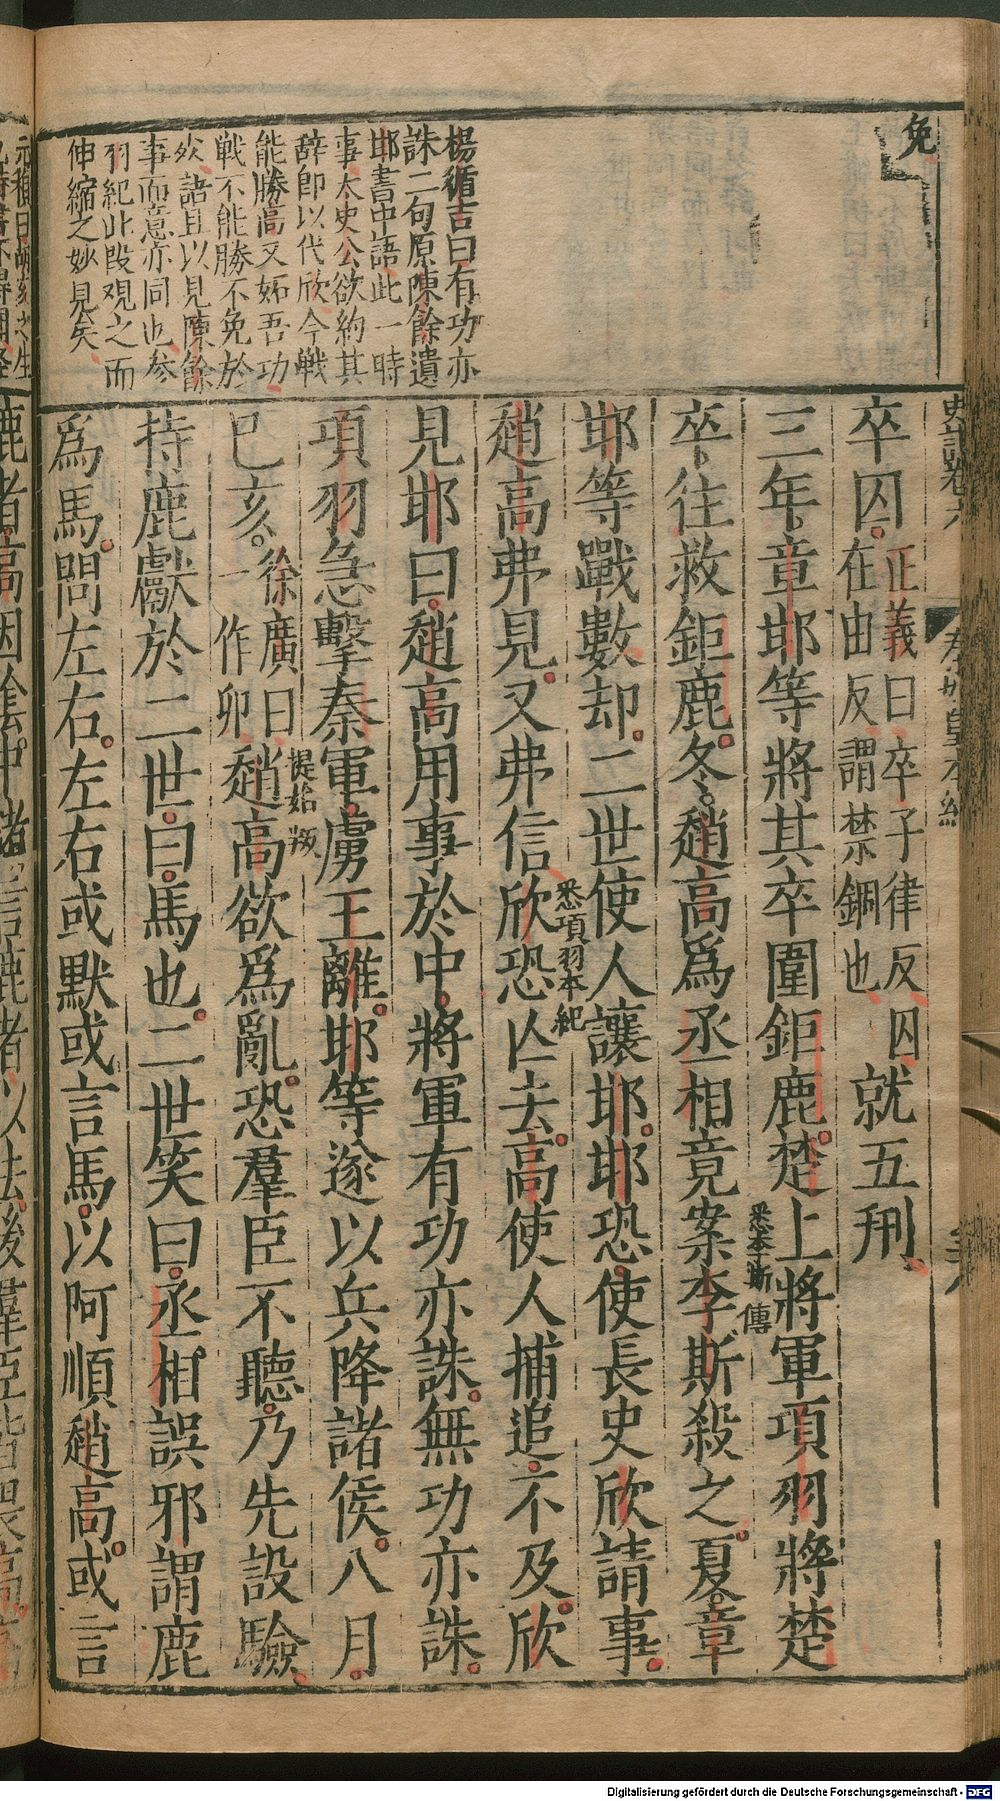 免
楊循吉曰有功亦
誅二句原陳餘遺
邯書中語此一時
事太史公欲約其
辞即以代欣今戦
能勝高又妬吾功
戦不能勝不免於
死諸且以見陳餘
事而意亦同也参
羽紀此段观之而
伸縮之妙見矣
卒囚。正義曰卒子律反囚
在由反謂禁錮也
就五刑
三年章邯等將其卒圍鉅鹿楚上將軍項羽將楚
悉李斯傳
卒往救鉅鹿冬趙高爲丞相竟案李斯殺之夏章
邯等戰數却二世使人讓邯邯恐使長史欣請事
悉項羽本紀
趙高弗見又弗信欣恐亾去高使人捕追不及欣
見邯曰趙高用事於中將軍有功亦誅無功亦誅
項羽急擊秦軍虜王離邯等遂以兵降諸侯八月
提始叛
己亥。徐廣曰
一作卯
趙高欲爲亂恐羣臣不聽乃先設驗
持鹿獻於二世曰馬也二世笑曰丞相誤邪謂鹿
爲馬問左右左右或默或言馬以阿順趙高或言
Digitalisierung gefördert durch die Deutsche Forschungsgemeinschaft - DFG